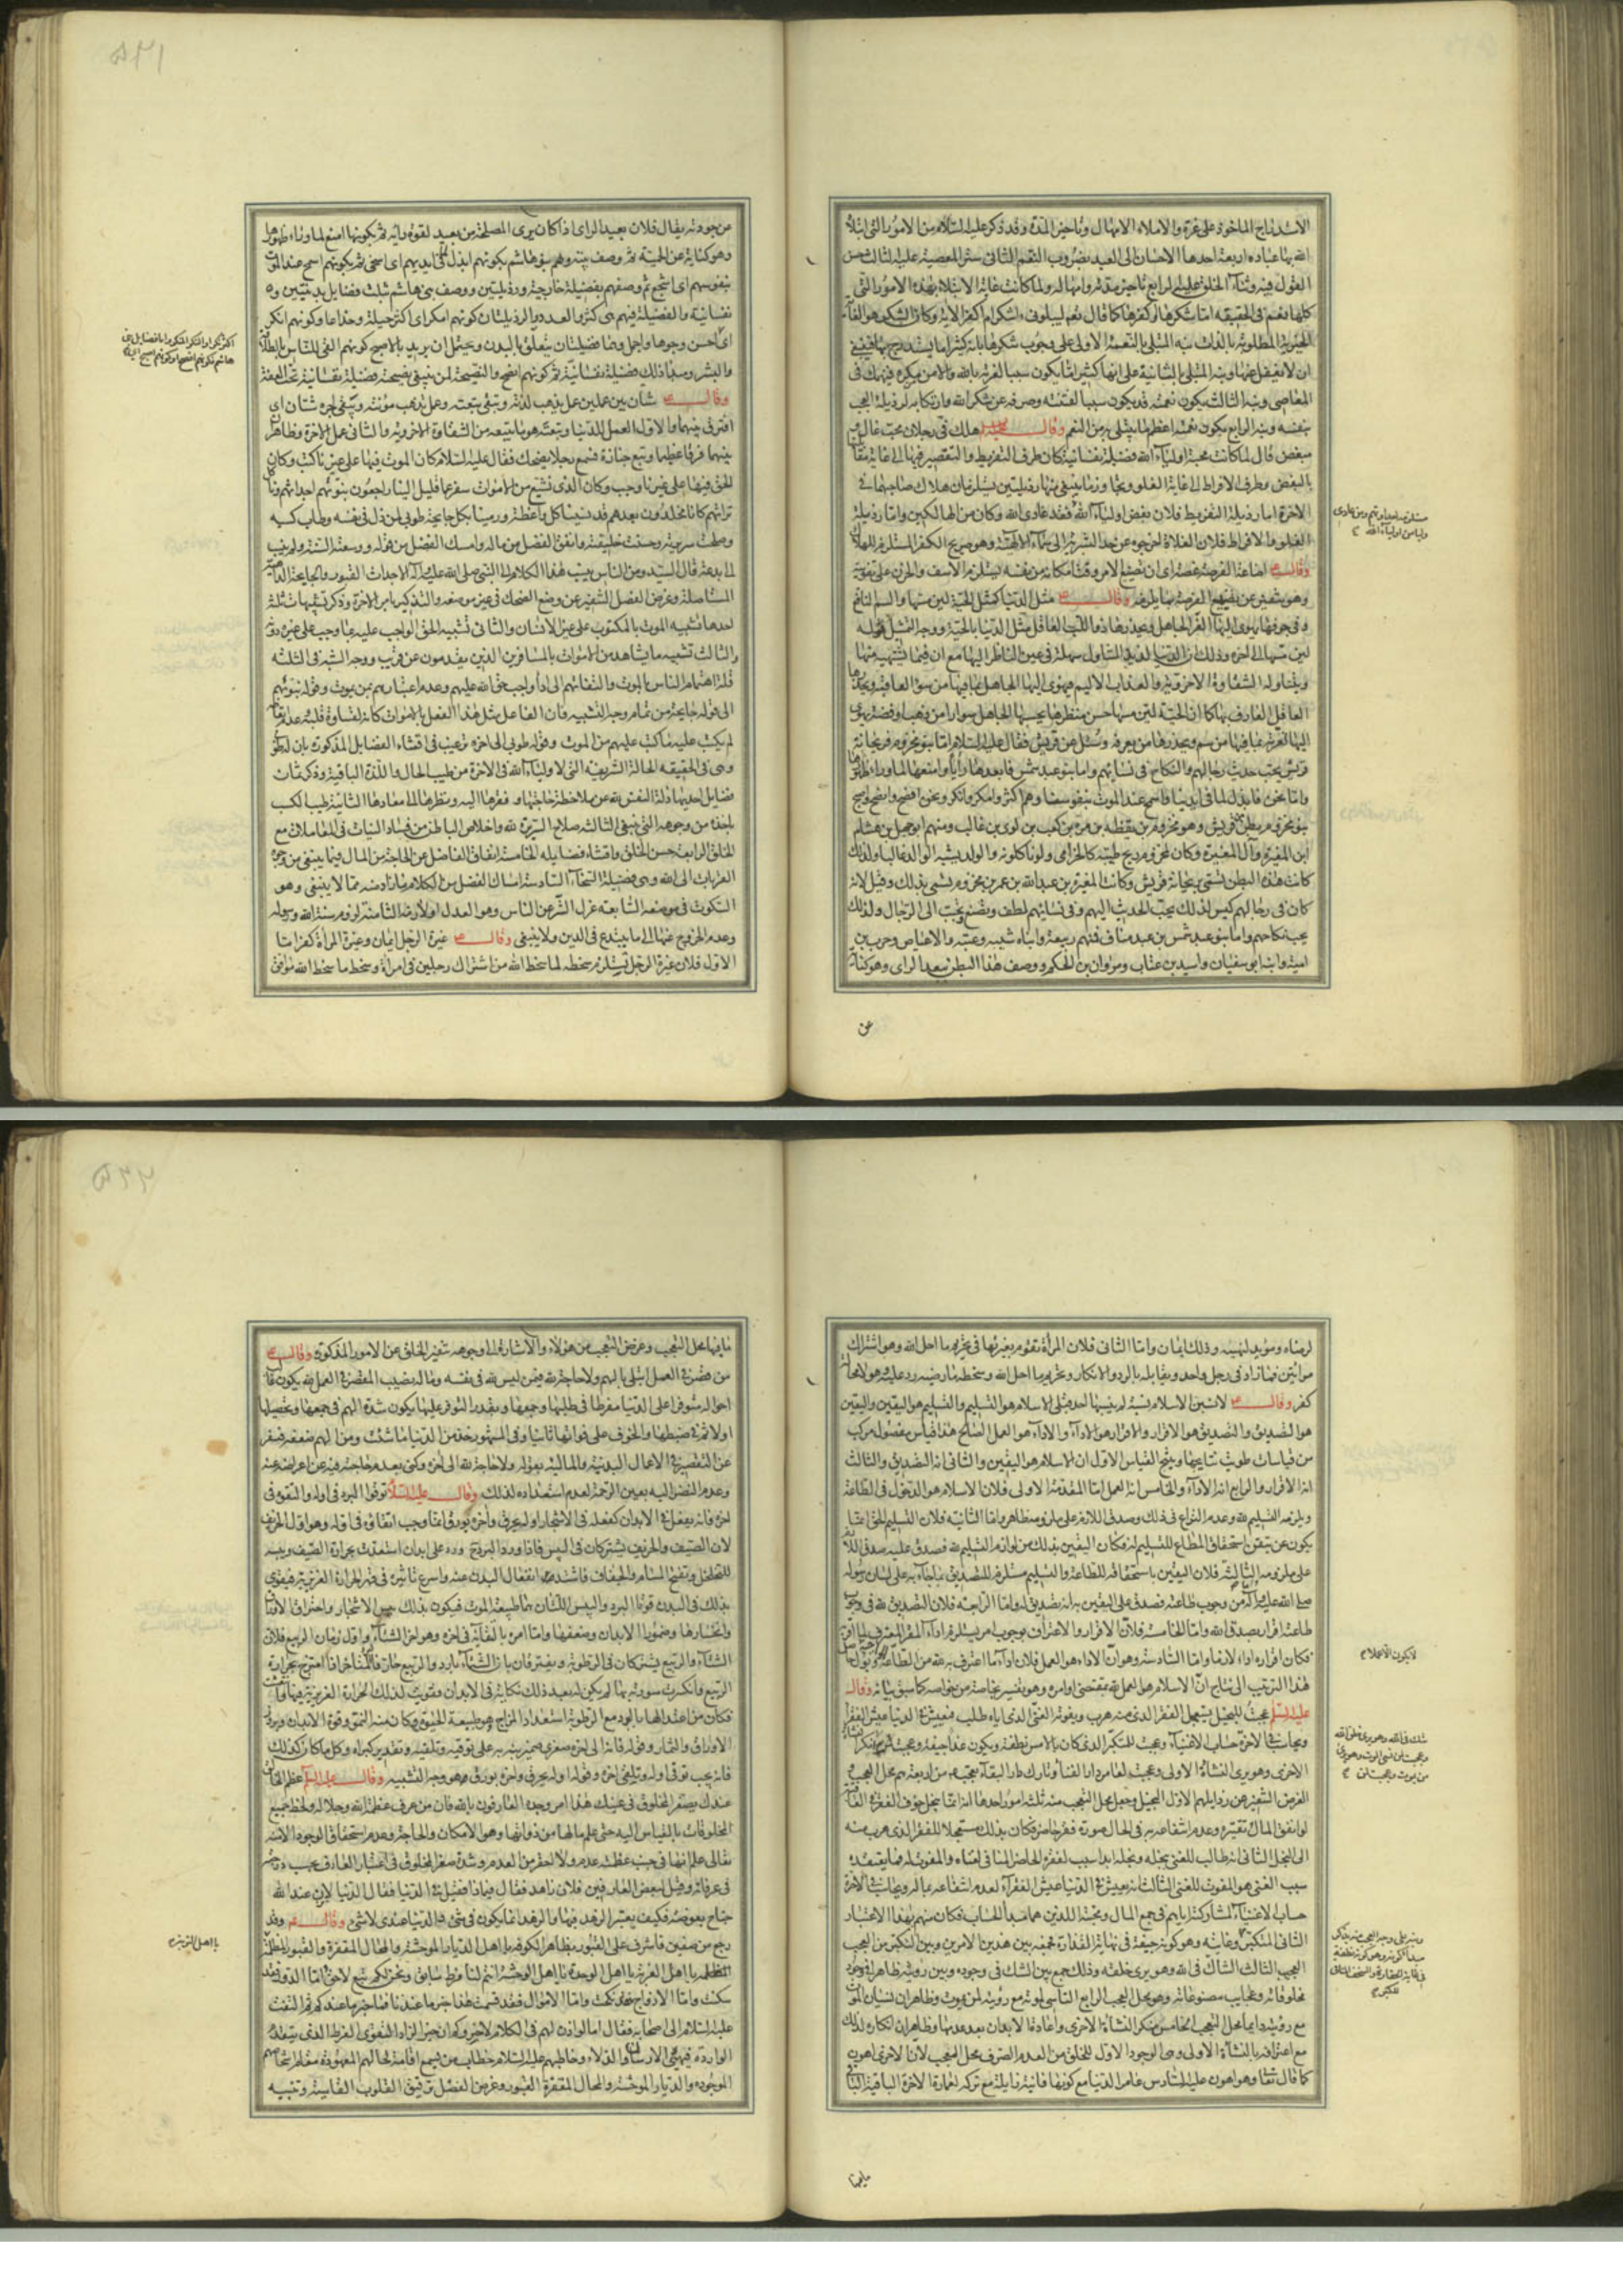 الاستدراج الماخوذ على غرة والاملاء الامهال وتاخير المدة وقد ذكر عليه السلام من الامور التى ابتلا
الله بها عباده اربعة احدها الاحسان الى العبد بضروب النعم الثانى ستر المعصية عليه الثالث حسن
القول فيه وثناء الخلق عليه الرابع تاخير مدته وامهاله ولما كانت غاية الابتلا بهذه الامور التى
كلها نعم فى الحقيقه اما شكرها او كفرها كما قال نعم ليبلونى ءاشكر ام اكفر الاية وكان الشكر هو الغاية
الخيرية المطلوبة بالذات نبه المبتلى بالنعمة الاولى على وجوب شكرها بانه كثيرا ما يستدرج بها فينبغى
ان لا يغفل عنها ونبه المبتلى بالثانية على انها كثيرا ما يكون سببا لغرته بالله والامن من مكره فينهمك فى
المعاصى ونبه الثالث بكون نعمته قد يكون سببا لفتنته وصرفه عن شكر الله وارتكابه لرذيلة العجب
بنفسه ونبه الرابع بكون نعمته اعظم ما يبتلى به من النعم وقال هلك فى رجلان محب غال و
مبغض قال لما كانت محبة اولياء الله فضيلة نفسانية كان طرف التفريط والتقصير فيها الى غاية مقابلتها
بالبغض وطرف الافراط الى غاية الغلو وتجاوز ما ينبغى منها رذيلتين يستلزمان هلاك صاحبهما فى
الاخرة اما رذيلة التفريط فلان بغض اولياء الله فقد عادى الله وكان من الهالكين واما رذيلة
الغلو والافراط فلان الغلاة لخروجه عن حد البشرية الى سماء الالهية وهو صريح الكفر المستلزم للهلاك
وقال اضاعة الفرصة غصة اى ان تضييع الامر وقت امكانه من نفسه يستلزم الاسف والحزن على تفويته
وهو تنفير عن تفويت الفرصة وقال مثل الدنيا كمثل الحية لين مسها والسم الناقع
فى جوفها يهوى اليها الغر الجاهل ويحذرها ذو اللب العاقل مثل الدنيا بالحية ووجه التمثيل قوله
لين مسها الى اخره وذلك ان الدنيا لذيذ المتناول سهلة فى عين الناظر اليها مع ان فيما يشتهيه منها
ويتناوله الشقاوة الاخروية والعذاب الاليم فيهوى اليها الجاهل بما فيها من سوء العاقبة ويحذرها
العاقل العارف بها كما ان الحية لين مسها حسن منظرها يحسبها الجاهل سوارا من ذهب او فضة يهوى
اليها لغرته بما فيها من سم ويحذرها من يعرفه وسئل عن قريش فقال عليه السلام اما بنو مخزوم فريحانة
قريش يحب حديث رجالهم والنكاح فى نسائهم واما بنو عبد شمس فابعدها رايا وامنعها لما وراء ظهورها
واما نحن فابذل لما فى ايدينا واسمح عند الموت بنفوسنا وهم اكثر وامكر وانكر ونحن افصح وانصح واصبح
بنو مخزوم بطن من قريش وهو مخزوم بن يقظه بن مرة بن كعب بن لوى بن غالب ومنهم ابو جهل بن هشام
ابن المغيرة وآل المغيرة وكان لمخزوم ريح طيبة كالخزامى ولونا كلونه والولد يشبه الوالد غالبا ولذلك
كانت هذه البطن تسمى بريحانة قريش وكانت المغيرة بن عبد الله بن عمر بن مخزوم يسمى بذلك وقيل لانه
كان فى رجالهم كيس لذلك يحب الحديث اليهم وفى نسائهم لطف وتصنع وتحبب الى الرجال ولذلك
يحب نكاحهم واما بنو عبد شمس بن عبد مناف فمنهم ربيعة وابناه شيبه وعتبه والاعياص وحرب بن
امية وابنه ابو سفيان واسيد بن عتاب ومروان بن الحكم ووصف هذا البطن ببعد الراى وهو كناية
عن
عن جودته يقال فلان بعيد الراى اذا كان يرى المصلحة من بعيد لقوة رايه ثم بكونها امنع لما وراء ظهورها
وهو كناية عن الحمية ثم وصف بيته وهم بنو هاشم بكونهم ابذل لما فى ايديهم اى اسخى ثم بكونهم اسمح عند الموت
بنفوسهم اى اشجع ثم وصفهم بفضيلة خارجية ورذيلتين ووصف بنى هاشم بثلث فضايل بدنيتين و
نفسانية والفضيلة فيهم هى كثرة العدد والرذيلتان كونهم امكر اى اكثر حيلة وخداعا وكونهم انكر
اى احسن وجوها واجمل وهما فضيلتان يتعلق بالبدن ويحتمل ان يريد بالاصبح كونهم القى للناس بالطلاقة
والبشر ومبدا ذلك فضيلة نفسانية ثم كونهم انصح والنصيحة لمن ينبغى نصيحته فضيلة نفسانية تحت العفة
وقال شتان بين عملين عمل يذهب لذته وتبقى تبعته وعمل يذهب مؤنته ويبقى اجره شتان اى
افترق بينهما والاول العمل للدنيا وتبعته هو ما يتبعه من الشقاوة الاخروية والثانى عمل الاخرة وظاهر
بينهما فرقا عظيما وتبع جنازة فسمع رجلا يضحك فقال عليه السلام كان الموت فيها على غيرنا كتب وكان
الحق فيها على غيرنا وجب وكان الذى نشيع من الاموات سفر عما قليل الينا راجعون نبوئهم اجداثهم وناكل
تراثهم كانا مخلدون بعدهم قد نسينا كل واعظة ورمينا بكل جايحة طوبى لمن ذل فى نفسه وطاب كسبه
وصلحت سريرته وحسنت خليقته وانفق الفضل من ماله وامسك الفضل من قوله ووسعته السنة ولم ينسب
لما بدعة قال السيد ومن الناس ينسب هذا الكلام الى النبى صلى الله عليه وآله الاجداث القبور والجايحة الداهية
المستاصلة وغرض الفصل التنفير عن وضع الضحك فى غير موضعه والتذكير بامر الاخرة وذكر تشبيهات ثلثة
احدها تشبيه الموت بالمكتوب على غير الانسان والثانى تشبيه الحق الواجب عليه بما وجب على غيره دونه
والثالث تشبيه ما يشاهد من الاموات بالمسافرين الذين يقدمون عن قريب ووجه الشبه فى الثلثة
قلة اهتمام الناس بالموت والتفاتهم الى اداء واجب حق الله عليهم وعدم اعتبارهم بمن يموت وقوله نبوئهم
الى قوله جايحة من تمام وجه التشبيه فان الفاعل مثل هذا الفعل بالاموات كانه لقساوة قلبه
لم يكتب عليه ما كتب عليهم من الموت وقوله طوبى الى اخره ترغيب فى اقتناء الفضايل المذكورة بان له طوبى
وهى فى الحقيقه الحالة الشريفة التى لاولياء الله فى الاخرة من طيب الحال واللذة الباقية وذكر ثمان
فضايل احديها ذلة النفس لله عن ملاحظة حاجتها وفقرها اليه ونظرها الى معادها الثانية طيب الكسب
باخذه من وجوهه التى ينبغى الثالثه صلاح السريرة لله واخلاص الباطن من فساد النيات فى المعاملات مع
الخلق الرابعة حسن الخلق واقتناء فضايله الخامسة انفاق الفاضل عن الحاجة من المال فيما ينبغى من وجوه
القربات الى الله وهى فضيلة السخاء السادسة امساك الفضل من الكلام ما زاد منه مما لا ينبغى وهو
السكوت فى موضعه السابعة عزل الشر عن الناس وهو العدل او لازمه الثامنة لزوم سنة الله ورسوله
وعدم الخروج عنها الى ما يبتدع فى الدين ولا ينبغى وقال غيرة الرجل ايمان وغيرة المراة كفر اما
الاول فلان غيرة الرجل تستلزم سخطه لما سخط الله من اشتراك رجلين فى امراة وسخط ما سخط الله موافق
لرضاه ومؤيد لنهيه وذلك ايمان واما الثانى فلان المراة تقوم بغيرتها فى تحريم ما احل الله وهو اشتراك
مراتين فما زاد فى رجل واحد وتقابله بالرد والانكار وتحريم ما احل الله وسخط ما رضيه رد عليه وهو لا محالة
كفر وقال لانسبن الاسلام نسبة لم ينسبها احد قبلى الاسلام هو التسليم والتسليم هو اليقين واليقين
هو التصديق والتصديق هو الاقرار والاقرار هو الاداء والاداء هو العمل الصالح هذا قياس مفصول مركب
من قياسات طويت نتايجها وينتج القياس الاول ان الاسلام هو اليقين والثانى انه التصديق والثالث
انه الاقرار والرابع انه الاداء والخامس انه العمل اما المقدمة الاولى فلان الاسلام هو الدخول فى الطاعة
ويلزمه التسليم لله وعدم النزاع فى ذلك وصدق اللازم على ملزومه ظاهر واما الثانية فلان التسليم الحق انما
يكون عن تيقن استحقاق المطاع للتسليم له فكان اليقين بذلك من لوازم التسليم لله فصدق عليه صدق اللازم
على ملزومه الثالثة فلان اليقين باستحقاقه للطاعة والتسليم مستلزم للتصديق بما جاء به على لسان رسوله
صلى الله عليه وآله من وجوب طاعته فصدق على اليقين به انه تصديق له واما الرابعة فلان التصديق لله فى وجوب
طاعته اقرار بصدق الله واما الخامسة فلان الاقرار والاعتراف بوجوب امر يستلزم اداء المقر المعترف لما اقر به
فكان اقراره اداء لازما واما السادسة وهو ان الاداء هو العمل فلان اداء ما اعترف به لله من الطاعة
هذا الترتيب الى انتاج ان الاسلام هو العمل لله بمقتضى اوامره وهو تفسير بخاصة من خواصه كما سبق بيانه وقال
عليه السلم عجبت للبخيل يستعجل الفقر الذى منه هرب ويفوته الغنى الذى اياه طلب فيعيش فى الدنيا عيش الفقراء
ويحاسب فى الاخرة حساب الاغنياء وعجبت للمتكبر الذى كان بالامس نطفة ويكون غدا جيفة وعجبت لمن انكر النشاة
الاخرى وهو يرى النشاة الاولى وعجبت لعامر دار الفناء وتارك دار البقاء
الغرض التنفير عن رذايلهم الاول البخيل وجعل محل التعجب منه ثلثة امور احدها انه انما يبخل خوف الفقر فى العاقبة
لو انفق المال تقتيره وعدم انتفاعه به فى الحال صورة فقر حاضر فكان بذلك مستعجلا للفقر الذى هرب منه
الى البخل الثانى انه طالب للغنى ببخله وبخله ابدا سبب لفقره الحاضر المنافى لغناه والمفوت له فما يعتقده
سبب الغنى هو المفوت للغنى الثالث انه يعيش فى الدنيا عيش الفقراء لعدم انتفاعه بماله ويحاسب فى الاخرة
حساب الاغنياء لمشاركته اياهم فى جمع المال ومحبته اللذين هما مبدأ الحساب فكان منهم بهذا الاعتبار
الثانى المتكبر وغايته وهو كونه جيفة فى نهاية القذارة فجمعه بين هذين الامرين وبين التكبر من العجب
العجيب الثالث الشاك فى الله وهو يرى خلقه وذلك جمع بين الشك فى وجوده وبين رؤيته ظاهرا فى وجود
مخلوقاته وعجايب مصنوعاته وهو محل العجب الرابع الناسى لموته مع رؤيته لمن يموت وظاهر ان نسيان الموت
مع رؤيته دايما محل التعجب الخامس منكر النشاة الاخرى واعادة الابدان بعد عدمها وظاهر ان انكاره لذلك
مع اعترافه بالنشاة الاولى وهى الوجود الاول للخلق من العدم الصرف محل العجب لان الاخرى اهون
كما قال تعالى وهو اهون عليه السادس عامر الدنيا مع كونها فانية زايلة مع تركه لعمارة الاخرة الباقية
مابها
مابها محل التعجب وغرض التعجب من هؤلاء والاشارة الى وجوهه تنفير الخلق عن الامور المذكورة وقال
من قصر فى العمل ابتلى بالهم ولا حاجة لله فيمن ليس لله فى نفسه وماله نصيب المقصر فى العمل لله يكون غالب
احواله متوفرا على الدنيا مفرطا فى طلبها وجمعها وبقدر التوفر عليها يكون شدة الهم فى جمعها وتحصيلها
اولا ثم فى ضبطها والخوف على فواتها ثانيا وفى المشهور خذ من الدنيا ما شئت ومن الهم ضعفه فنفر
عن التقصير فى الاعمال البدنية والمالية بقوله ولا حاجة لله الى اخره وكنى بعدم حاجته فيه عن اعراضه عنه
وعدم النظر اليه بعين الرحمة لعدم استعداده لذلك وقال عليه السلام توقوا البرد فى اوله وتلقوه فى
اخره فانه يفعل فى الابدان كفعله فى الاشجار اوله يحرق واخره يورق انما وجب اتقاؤه فى اوله وهو اول الخريف
لان الصيف والخريف يشتركان فى اليبس فاذا ورد البرد ورد على ابدان استعدت بحرارة الصيف ويبسه
للتخلخل وتفتح المسام والجفاف فاشتد انفعال البدن عنه واسرع تاثيره فى قهر الحرارة الغريزية فيقوى
بذلك فى البدن قوتا البرد واليبس اللتان هما طبيعة الموت فيكون بذلك يبس الاشجار واحتراق الاوراق
وانحسارها وضمور الابدان وضعفها واما امره بالقائه فى اخره وهو اخر الشتاء واول زمان الربيع فلان
الشتاء والربيع يشتركان فى الرطوبة ويفترقان بان الشتاء بارد والربيع حار فالشتاء اخرا اذا امتزج بحرارة
الربيع وانكسرت سورته بها لم يكن له بعد ذلك نكاية فى الابدان وقويت لذلك الحرارة الغريزية فيها وانتعشت
فكان من اعتدالها بالبرد مع الرطوبة استعداد المزاج هو طبيعة الحيوة وكان منه النمو وقوة الابدان وبروز
الاوراق والثمار وقوله فانه الى اخره صغرى ضمير نبه به على توقيه وتلقيه وتقدير كبراه وكل ما كان كذلك
فانه يجب توقى اوله وتلقى اخره وقوله اوله يحرق واخره يورق هو وجه التشبيه وقال عليه السلم عظم الخالق
عندك يصغر المخلوق فى عينك هذا امر وجده العارفون بالله فان من عرف عظمة الله وجلاله ولحظ جميع
المخلوقات بالقياس اليه حتى علم مالها من ذواتها وهو الامكان والحاجة وعدم استحقاق الوجود الا منه
تعالى علم انها فى جنب عظمته عدم ولا احقر من العدم وشدة صغر المخلوق فى اعتبار العارف بحسب درجته
فى عرفانه وقيل لبعض العارفين فلان زاهد فقال فيماذا فقيل فى الدنيا فقال الدنيا لا تزن عند الله
جناح بعوضة فكيف يعتبر الزهد فيها والزهد انما يكون فى شئ والدنيا عندى لا شئ وقال وقد
رجع من صفين فاشرف على القبور بظاهر الكوفه يا اهل الديار الموحشة والمحال المقفرة والقبور المظلمة
يا اهل الغربة يا اهل الوحدة يا اهل الوحشة انتم لنا فرط سابق ونحن لكم تبع لاحق اما الدور فقد
سكنت واما الازواج فقد نكحت واما الاموال فقد قسمت هذا خبر ما عندنا فما خبر ما عندكم ثم التفت
عليه السلام الى اصحابه فقال اما لو اذن لهم فى الكلام لاخبروكم ان خير الزاد التقوى الفرط الذى يتقدم
الواردة فيهيئ الارسان والدلاء وخاطبهم عليه السلام خطاب من يسمع اقامة لحالهم المعهودة مقام اشخاصهم
الموجوده والديار الموحشة والمحال المقفرة القبور وغرض الفصل ترقيق القلوب القاسية وتنبيه